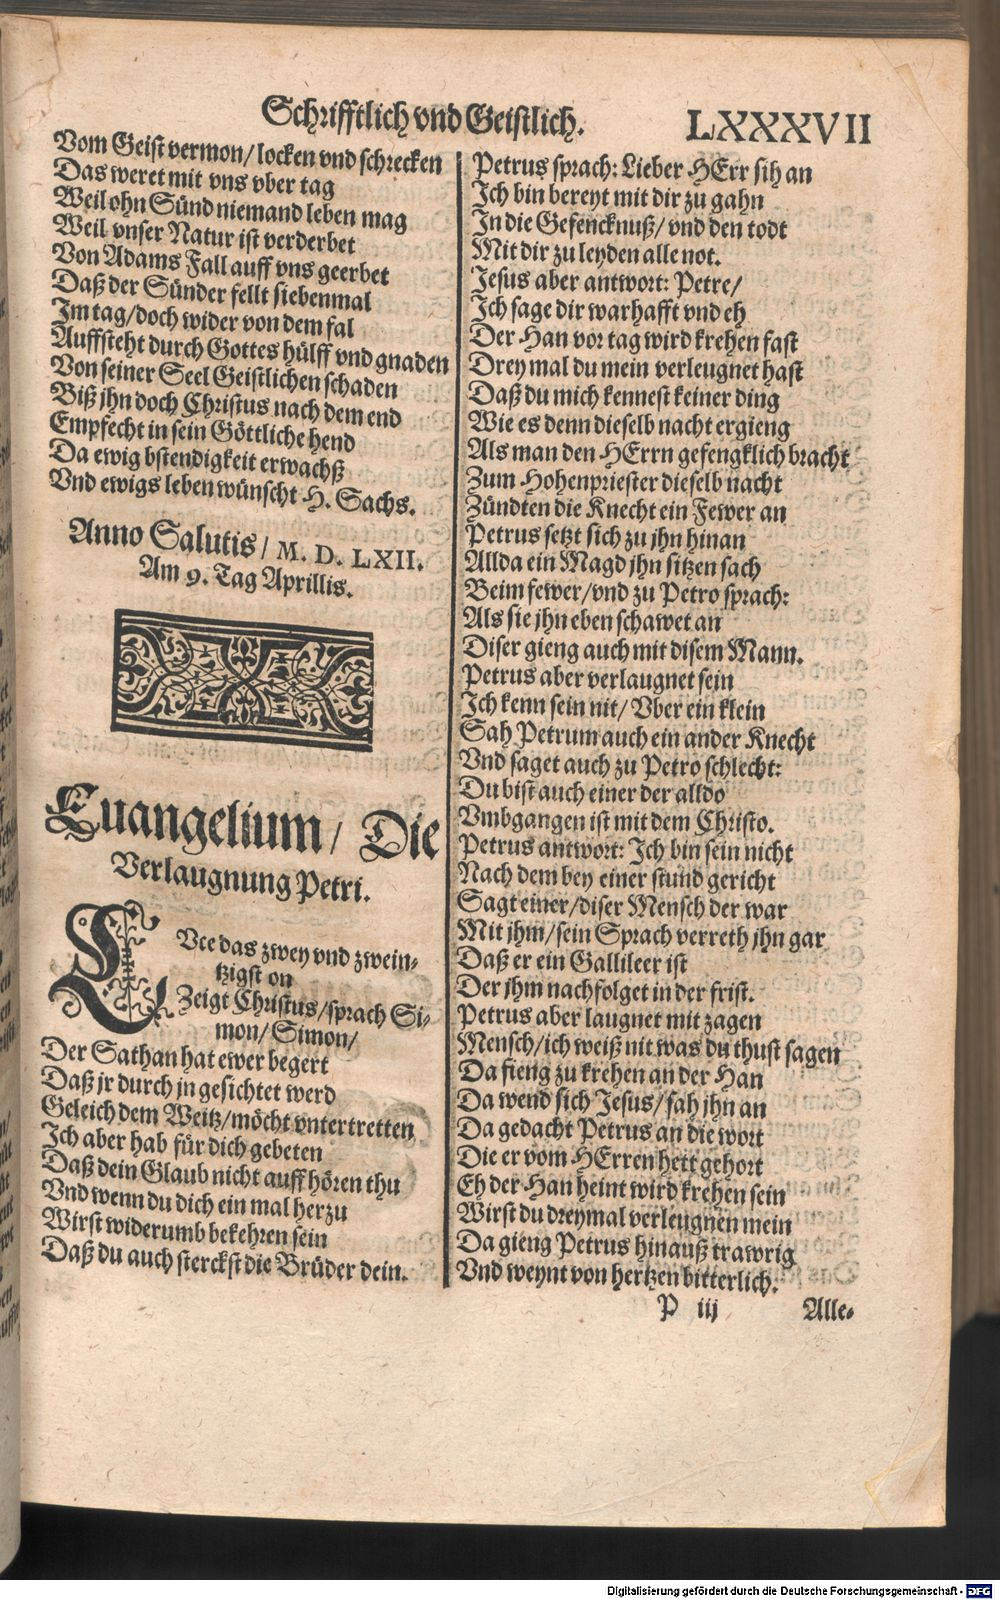 Schrifftlich vnd Geistlich. LXXXVII
Vom Geist vermon/ locken vnd schrecken
Das weret mit vns vber tag
Weil ohn Sünd niemand leben mag
Weil vnser Natur ist verderbet
Von Adams Fall auff vns geerbet
Daß der Sünder fellt siebenmal
Im tag/doch wider von dem fal
Auffsteht durch Gottes hülff vnd gnaden
Von seiner Seel Geistlichen schaden
Biß jhn doch Christus nach dem end
Empfecht in sein Göttliche hend
Da ewig bstendigkeit erwachß
Vnd ewigs leben wünscht H. Sachs.
Anno Salutis/ M. D. LXII.
Am 9. Tag Aprillis.
Euangelium/ Die
Verlaugnung Petri.
LVce das zwey vnd zwein-
tzigst on
Zeigt Christus/sprach Si-
mon/ Simon/
Der Sathan hat ewer begert
Daß jr durch jn gesichtet werd
Geleich dem Weitz/möcht vntertretten
Ich aber hab für dich gebeten
Daß dein Glaub nicht auff hören thu
Vnd wenn du dich ein mal herzu
Wirst widerumb bekehren sein
Daß du auch sterckst die Brüder dein.
Petrus sprach: Lieber HErr sih an
Ich bin bereyt mit dir zu gahn
In die Gefencknuß/ vnd den todt
Mit dir zu leyden alle not.
Jesus aber antwort: Petre/
Ich sage dir warhafft vnd eh
Der Han vor tag wird krehen fast
Drey mal du mein verleugnet hast
Daß du mich kennest keiner ding
Wie es denn dieselb nacht ergieng
Als man den HErrn gefengklich bracht
Zum Hohenpriester dieselb nacht
Zündten die Knecht ein Fewer an
Petrus setzt sich zu jhn hinan
Allda ein Magd jhn sitzen sach
Beim fewer/vnd zu Petro sprach:
Als sie jhn eben schawet an
Diser gieng auch mit disem Mann.
Petrus aber verlaugnet sein
Ich kenn sein nit/ Vber ein klein
Sah Petrum auch ein ander Knecht
Vnd saget auch zu Petro schlecht:
Du bist auch einer der alldo
Vmbgangen ist mit dem Christo.
Petrus antwort: Ich bin sein nicht
Nach dem bey einer stund gericht
Sagt einer/diser Mensch der war
Mit jhm/sein Sprach verreth jhn gar
Daß er ein Gallileer ist
Der jhm nachfolget in der frist.
Petrus aber laugnet mit zagen
Mensch/ich weiß nit was du thust sagen
Da fieng zu krehen an der Han
Da wend sich Jesus/sah jhn an
Da gedacht Petrus an die wort
Die er vom HErren hett gehort
Eh der Han heint wird krehen sein
Wirst du dreymal verleugnen mein
Da gieng Petrus hinauß trawrig
Vnd weynt von hertzen bitterlich.
P iij Alle-
Digitalisierung gefördert durch die Deutsche Forschungsgemeinschaft - DFG